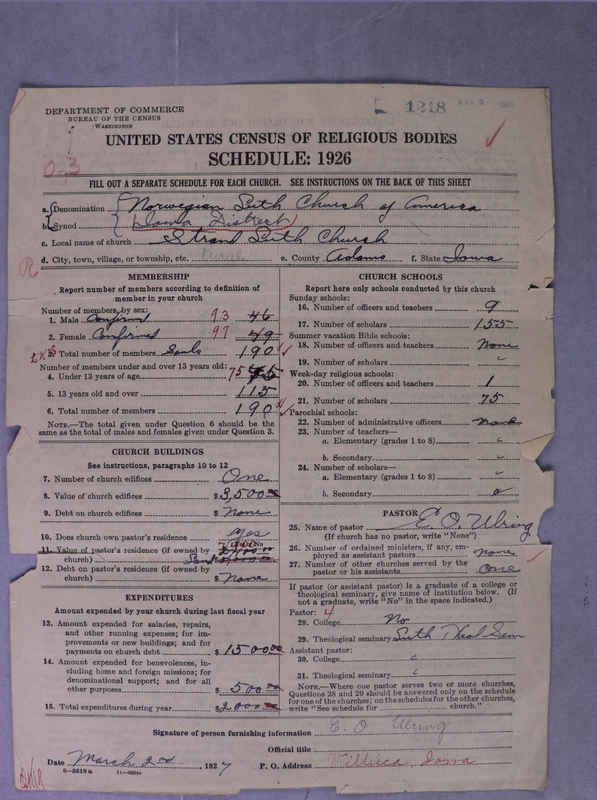 DEPARTMENT OF COMMERCE
BUREAU OF THE CENSUS
WASHINGTON
1218
MAR 5 1927
UNITED STATES CENSUS OF RELIGIOUS BODIES
SCHEDULE: 1926
0-3
FILL OUT A SEPARATE SCHEDULE FOR EACH CHURCH. SEE INSTRUCTIONS ON THE BACK OF THIS SHEET
a. Denomination Norwegian Luth Church of America
b. Synod Iowa District
c. Local name of church Strand Luth Church
d. City, town, village, or township, etc. Rural e. County Adams f. State Iowa
R
MEMBERSHIP
Report number of members according to definition of member in your church
Number of members, by sex:
1. Male Confirmed 93 46
2. Female Confirmed 97 49
3. Total number of members Souls 190
Number of members under and over 13 years old:
4. Under 13 years of age 75 75
5. 13 years old and over 115
6. Total number of members 190
NOTE.—The total given under Question 6 should be the
same as the total of males and females given under Question 3.
CHURCH BUILDINGS
See instructions, paragraphs 10 to 12
7. Number of church edifices One
8. Value of church edifices $ 3,500 00
9. Debt on church edifices $ None
10. Does church own pastor's residence? yes
11. Value of pastor's residence (if owned by
church)
12. Debt on pastor's residence (if owned by
church) $ None
EXPENDITURES
Amount expended by your church during last fiscal year
13. Amount expended for salaries, repairs,
and other running expenses; for im-
provements or new buildings; and for
payments on church debt $ 1500 00
14. Amount expended for benevolences, in-
cluding home and foreign missions; for
denominational support; and for all
other purposes $ 500 00
15. Total expenditures during year $ 2000 00
CHURCH SCHOOLS
Report here only schools conducted by this church
Sunday schools:
16. Number of officers and teachers 9
17. Number of scholars 155
Summer vacation Bible schools:
18. Number of officers and teachers None
19. Number of scholars "
Week-day religious schools:
20. Number of officers and teachers 1
21. Number of scholars 75
Parochial schools:
22. Number of administrative officers None
23. Number of teachers—
a. Elementary (grades 1 to 8) "
b. Secondary "
24. Number of scholars—
a. Elementary (grades 1 to 8) "
b. Secondary
PASTOR
25. Name of pastor E O Ulring
(If church has no pastor, write "None")
26. Number of ordained ministers, if any, em-
ployed as assistant pastors None
27. Number of other churches served by the
pastor or his assistants One
If pastor (or assistant pastor) is a graduate of a college or
theological seminary, give name of institution below. (If
not a graduate, write "No" in the space indicated.)
Pastor: 4
28. College No
29. Theological seminary Luth Theol Sem
Assistant pastor:
30. College "
31. Theological seminary "
NOTE.—Where one pastor serves two or more churches,
Questions 28 and 29 should be answered only on the schedule
for one of the churches; on the schedules for the other churches,
write "See schedule for church."
Signature of person furnishing information E. O Ulring
Official title
Date March 2nd, 1927 P. O. Address Villisca Iowa
8—5518a 11—9054a